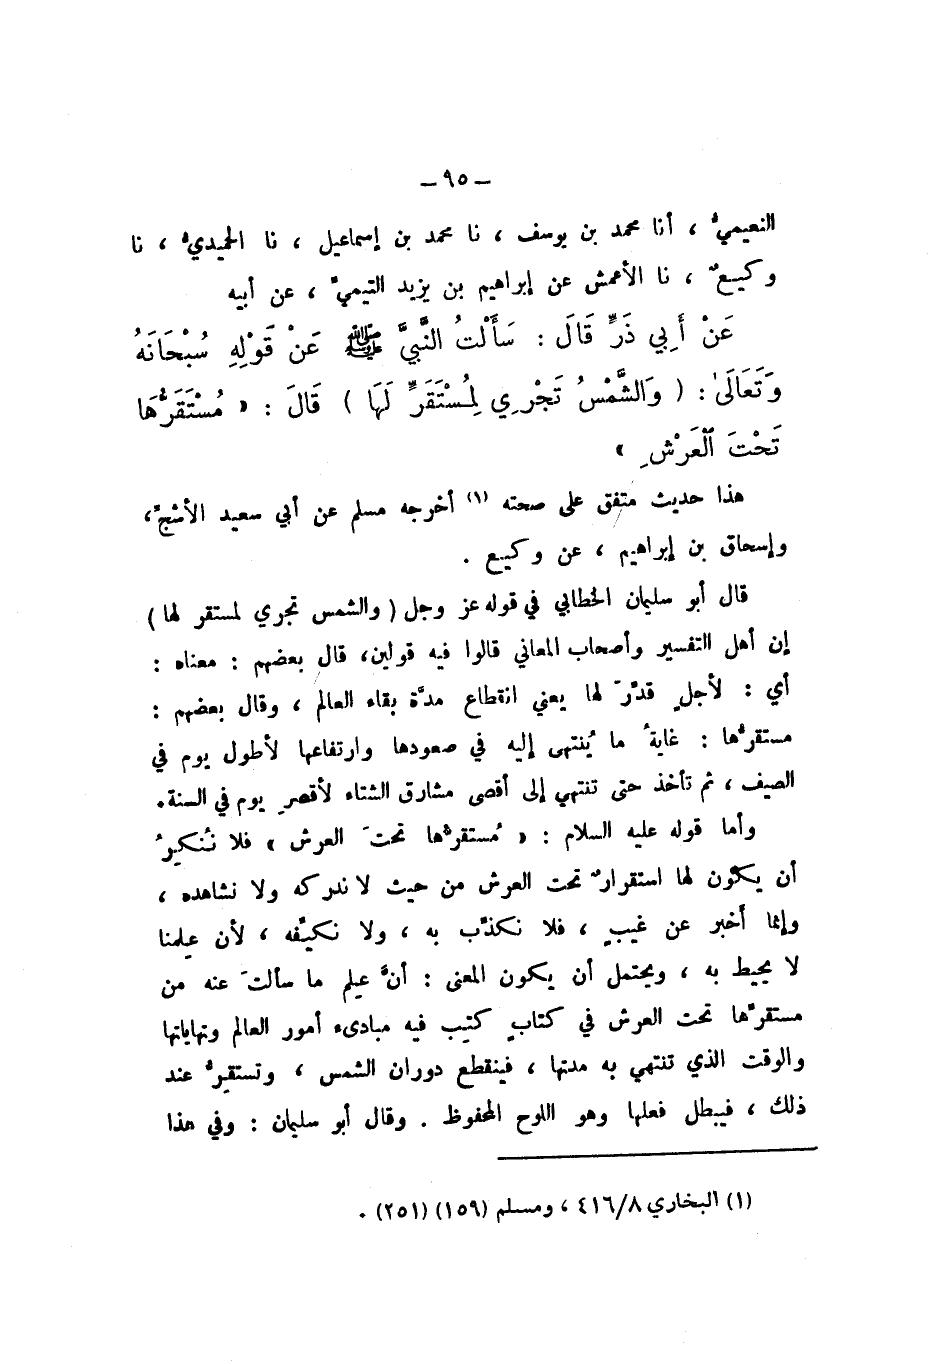 – ٩٥ –
النعيميُّ ، أنا محمد بن يوسف ، نا محمد بن إسماعيل ، نا الحميديُّ ، نا
وكيعٌ ، نا الأعمش عن إبراهيم بن يزيد التيميِّ ، عن أبيه
عَنْ أَبِي ذَرٍّ قَالَ : سَأَلْتُ النَّبِيَّ ﷺ عَنْ قَوْلِهِ سُبْحَانَهُ
وَتَعَالَىٰ : ( وَالشَّمْسُ تَجْرِي لِمُسْتَقَرٍّ لَهَا ) قَالَ : « مُسْتَقَرُّهَا
تَحْتَ الْعَرْشِ »
هذا حديث متفق على صحته (١) أخرجه مسلم عن أبي سعيد الأشجِّ،
وإسحاق بن إبراهيم ، عن وكيع .
قال أبو سليمان الخطابي في قوله عز وجل ( والشمس تجري لمستقر لها )
إن أهل التفسير وأصحاب المعاني قالوا فيه قولين، قال بعضهم : معناه :
أي : لأجلٍ قدِّرَ لها يعني انقطاع مدَّة بقاء العالم ، وقال بعضهم :
مستقرُّها : غايةُ ما يُنتهى إليه في صعودها وارتفاعها لأطول يوم في
الصيف ، ثم تأخذ حتى تنتهي إلى أقصى مشارق الشتاء لأقصرِ يوم في السنة.
وأما قوله عليه السلام : « مُستقرُّها تحتَ العرش » فلا نُنكِرُ
أن يكون لها استقرارٌ تحت العرش من حيث لا ندركه ولا نشاهده ،
وإنما أَخبر عن غيبٍ ، فلا نكذِّب به ، ولا نكيِّفه ، لأن عِلمنا
لا يحيط به ، ويحتمل أن يكون المعنى : أنَّ عِلم ما سألتَ عنه من
مستقرِّها تحت العرش في كتابٍ كُتِب فيه مبادىء أمور العالم ونهاياتها
والوقت الذي تنتهي به مدتها ، فينقطع دوران الشمس ، وتستقِرُّ عند
ذلك ، فيبطل فعلها وهو اللوح المحفوظ . وقال أبو سليمان : وفي هذا
(١) البخاري ٤١٦/٨ ، ومسلم (١٥٩) (٢٥١) .